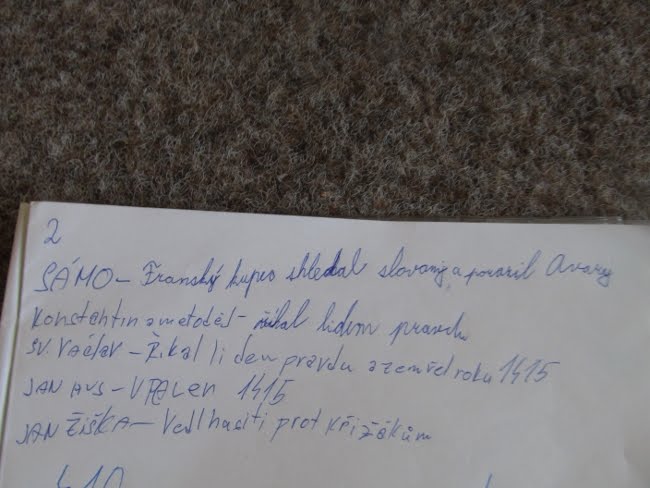 2
SÁMO - Franský kupec shledal slovany a porazil Avary
Konstantin a metoděj - říkal lidem pravdu
SV. Václav - Říkal lidem pravdu a zemřel roku 1415
JAN HUS - UPALEN 1415
JAN ŽIŠKA - Vedl husiti prot křižákům